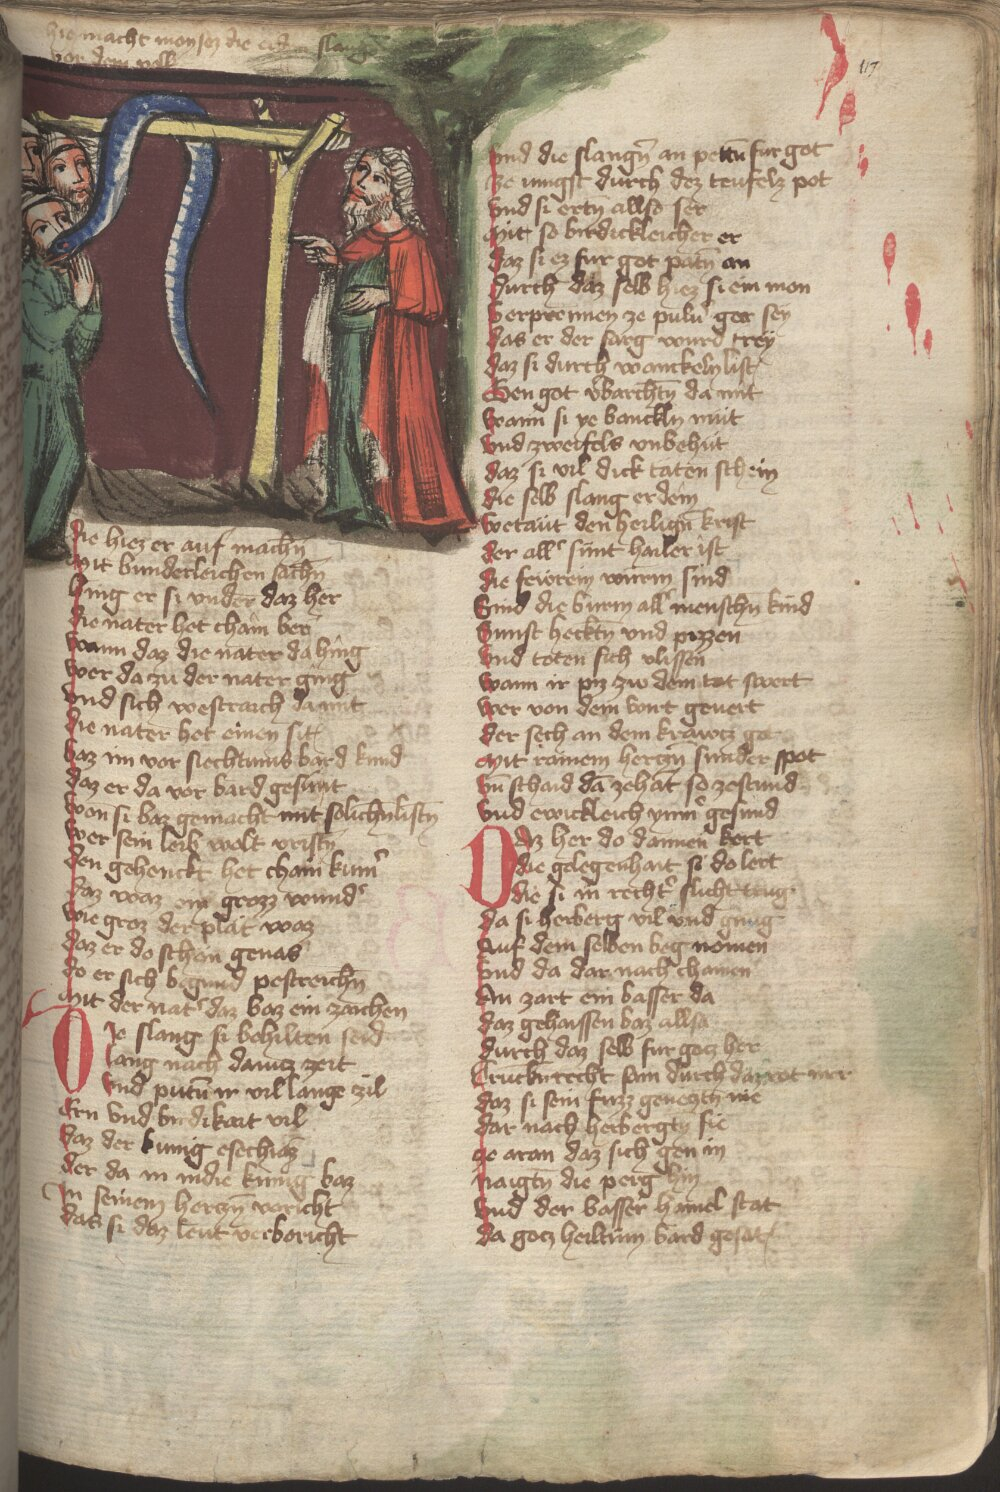 hie macht moyses die erdein slang
vor dem volk
117
die hiez er auf machn̄
mit bunderleichen sachn̄
hing er si vnder daz her
die nater het chain ber
wann daz die nater da hing
wer da zu der nater ging
vnd sich westraich da mit
die nater het einen sit
baz im vor siechtums bard kund
daz er da vor bard gesunt
von si baz gemacht mit solichn listn̄
wer sein leib wolt vristn̄
den gehenckt het chain kum̄
daz waz ein grozz wund
wie groz der plat waz
daz er do schon genas
do er sich begund pestreichn̄
mit der nat daz baz ein zaichen
Die slang si behilten seid
lang nach dauitz zeit
vnd putn̄ ir vil lange zil
ern vnd virdikait vil
daz der kunig esechias
der da in iudie kunig baz
in seinem hertzn̄ voricht
das si daz leut verboricht
vnd die slangn̄ an petn̄ fur got
ze iungst durch dez teufelz pot
vnd si ertn̄ allso ser
mit so birdickleicher er
daz si ez fur got patn̄ an
durch daz selb hiez si ein mon
verprennen ze puluer gar sey
das er der sarg wurd frey
daz si durch wanckeln list
den got v̄barchtn̄ da mit
wann si ye banckln mut
vnd zweifels vnbehut
daz si vil dick taten schein
die selb slang erdein
wetaut den heilign̄ krist
der all sunt hailer ist
die feurein wurm sind
Sind die burm all menschn̄ kind
Sunst hecktn̄ vnd pizzen
vnd toten sich vlissen
wann ir piz zu dem tot swert
wer von dem wirt geuert
der sech an dem krawtz got
mit rainem hertzn̄ sunder spot
vn̄ schaid da zehant so zestund
vnd ewickleich ymm̄ gesund
Daz her do dannen kert
die gelegenhait si do lert
die si in recht slicht trug
da si herberg vil vnd gnug
Auf dem selben beg nomen
vnd da dar nach chamen
An zart ein basser da
daz gehaissen baz allsa
durch daz selb fur gotz her
Trucknrecht sam durch daz rot mer
daz si sein fuzz genetztn̄ nie
dar nach herbergtn̄ sie
ze aran daz sich gen in
naigtn̄ die perg hin
vnd der basser hamel stat
da gotz heiltum bard gesat